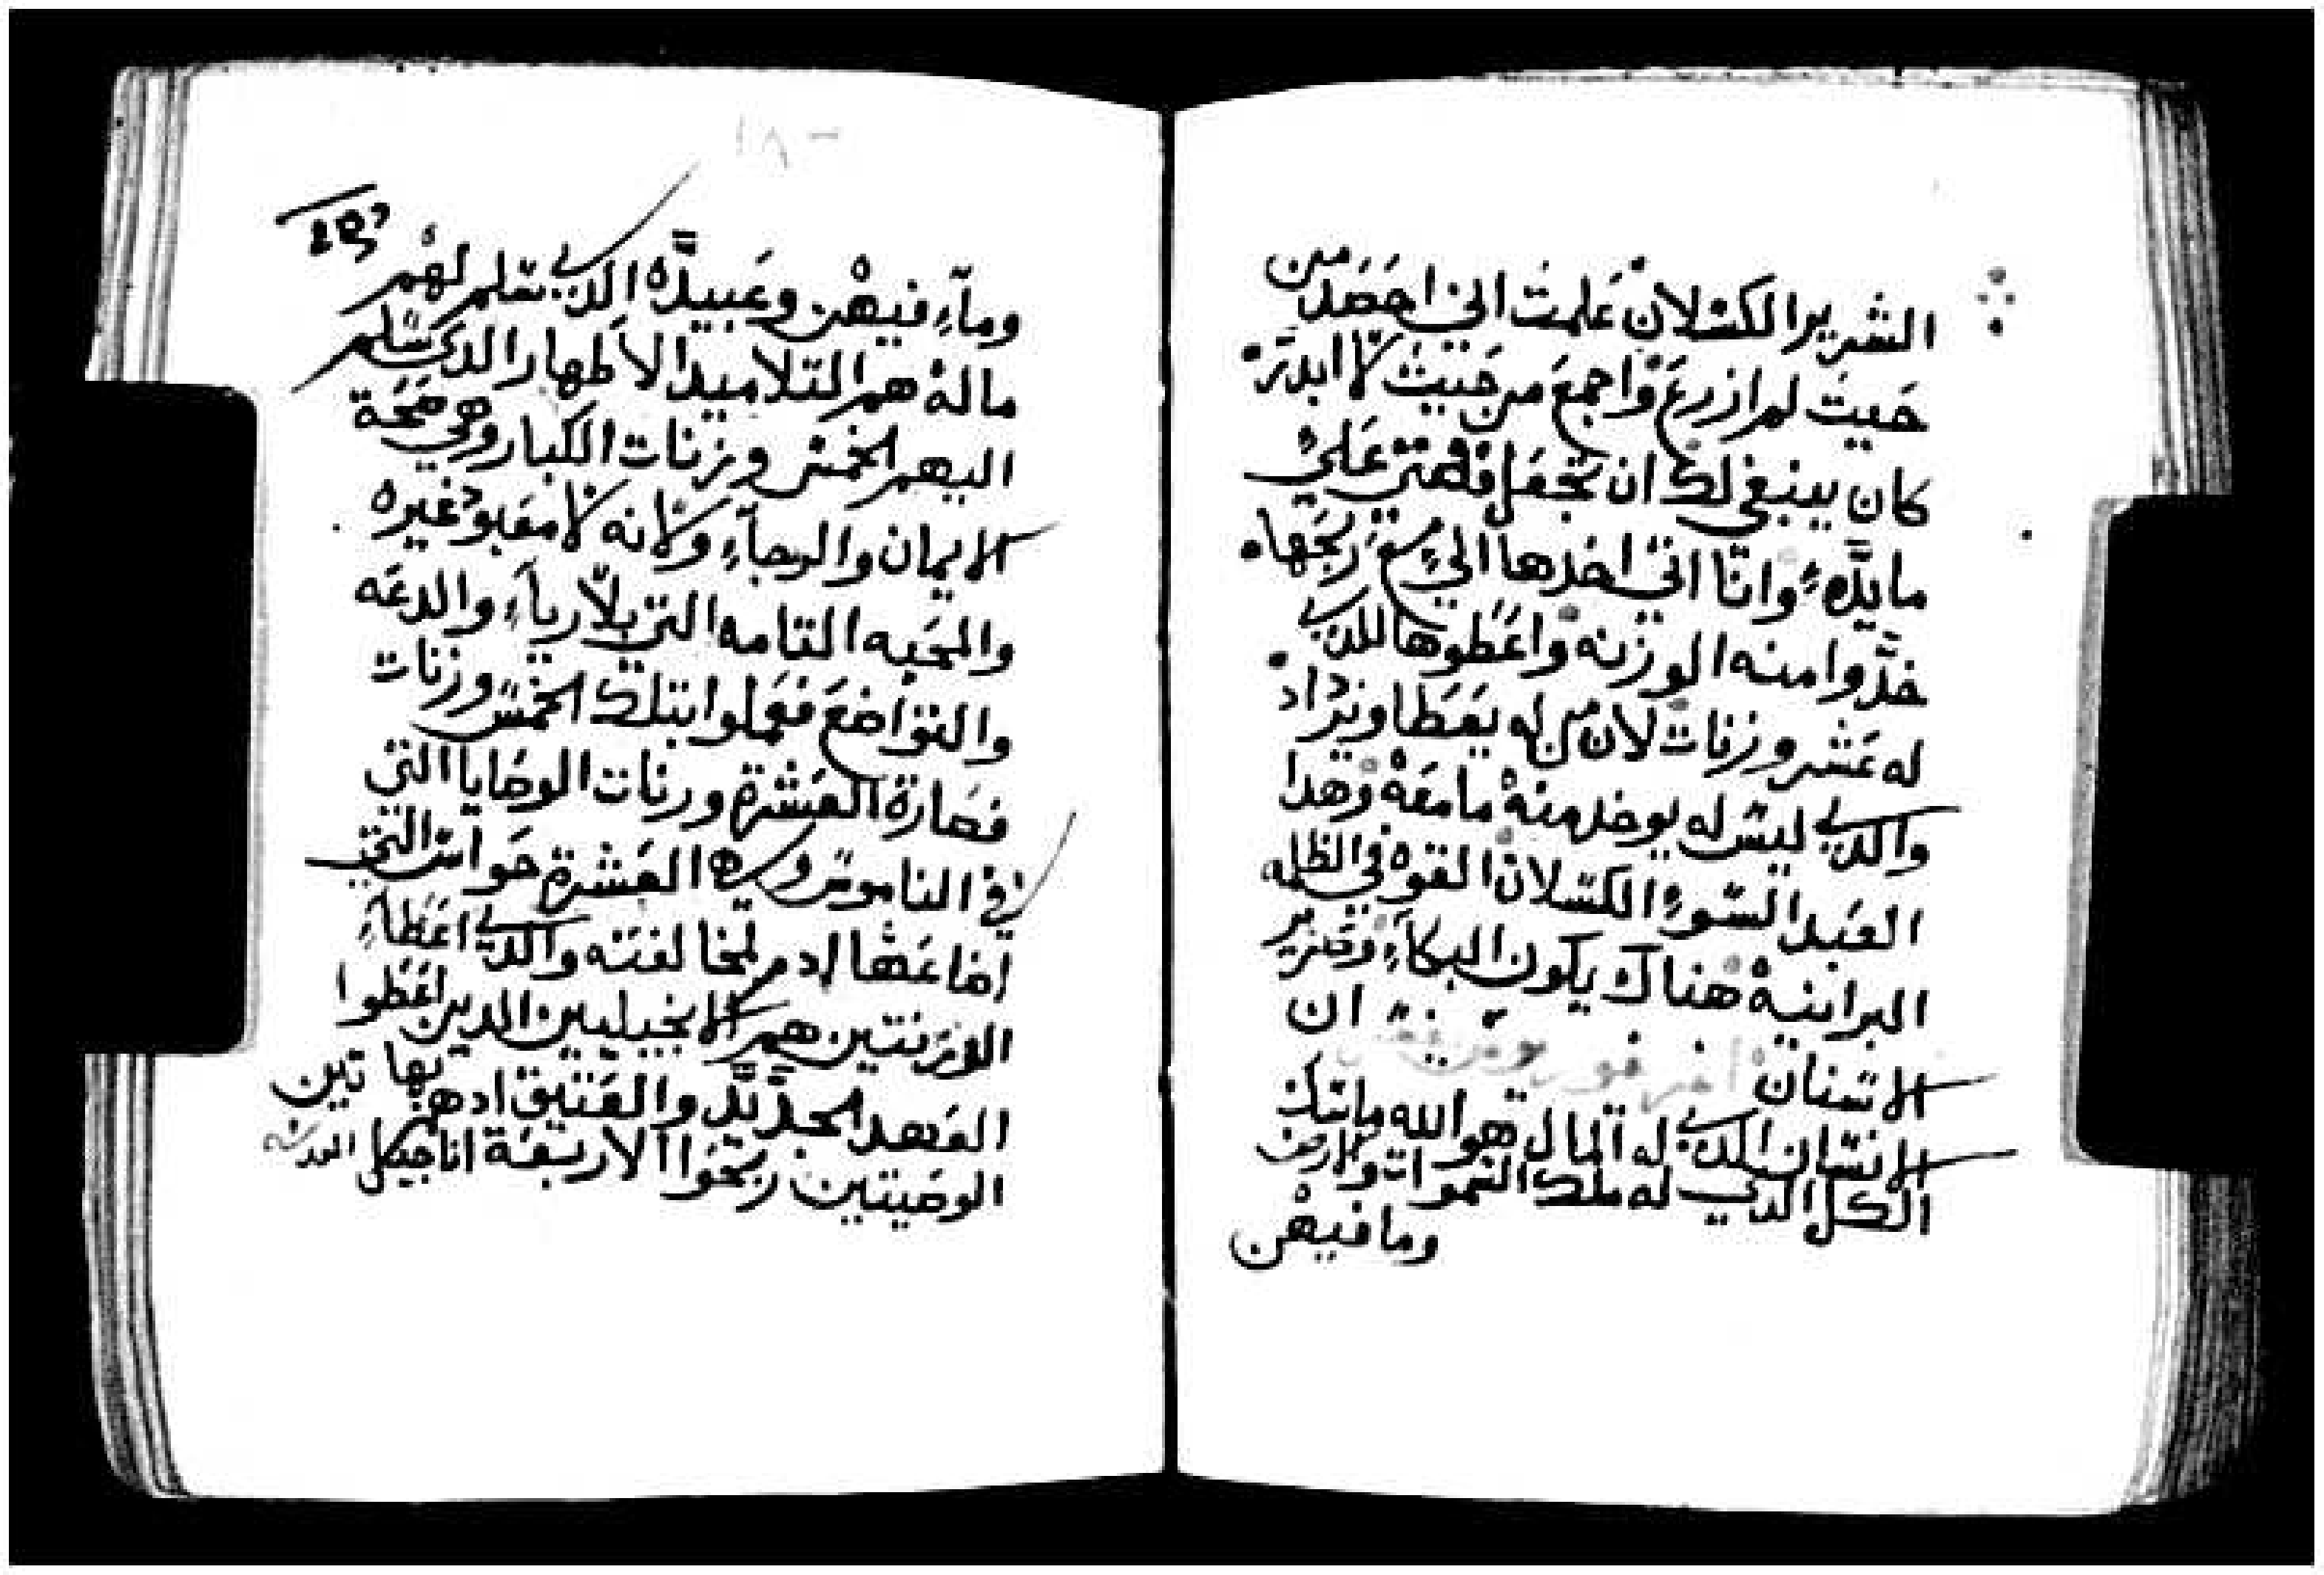 الشرير الكسلان علمت اني احصد من
حيت لم ازرع واجمع من حيث لا ابدر
كان ينبغي لك ان تجعل فضتي علي
مايده وانا اتي اخدها الي مع ربحها
خدوا منه الوزنه واعطوها للدي
له عشر وزنات لان من له يعطا ويزداد
والدي ليس له يوخد منه ما معه وهدا
العبد السوء الكسلان القوه في الظلمه
البرانيه هناك يكون البكاء وصرير
الاسنان ان
الانسان الدي له المال هو الله مالك
الكل الدي له ملك السموات والارض
وما فيهن
١٨٠
وماء فيهن وعبيده الدي سلم لهم
ماله هم التلاميد الاطهار الدي سلم
اليهم الخمس وزنات الكبار وهي صحة
الايمان والرجاء ولانه لا معبود غيره
والمحبه التامه التي بلا رياء والدعه
والتواضع فعملوا بتلك الخمس وزنات
فصارة العشرة وزنات الوصايا التي
في الناموس العشرة حواس التي
اضاعها ادم لمخالفته والدي اعطاء
الوزنتين هم الانجيليين الدين اعطوا
العهد الجديد والعتيق اد هم بهاتين
الوصيتين ربحوا الاربعة اناجيل